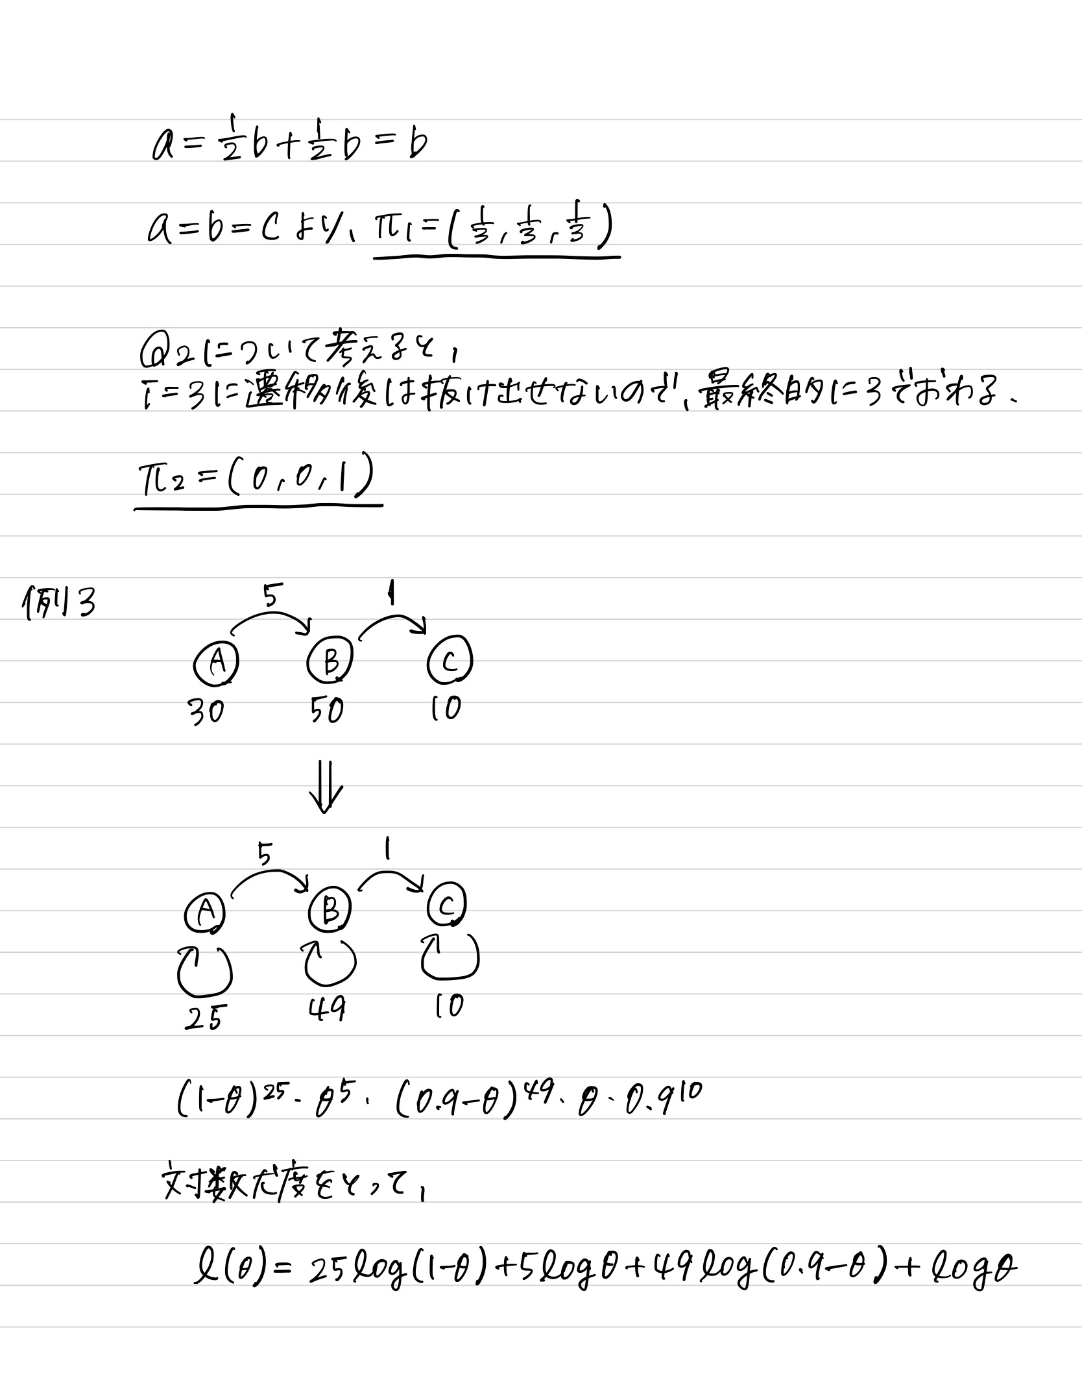 a = 1/2 b + 1/2 b = b
a = b = c より、π1 = (1/3, 1/3, 1/3)
Q2について考えると、
i=3に遷移後は抜け出せないので、最終的に3でおわる.
π2 = (0, 0, 1)
例3
5 1
A B C
30 50 10
⇓
5 1
A B C
25 49 10
(1-θ)^25・θ^5・(0.9-θ)^49・θ・0.9^10
対数尤度をとって、
l(θ) = 25log(1-θ)+5logθ+49log(0.9-θ)+logθ